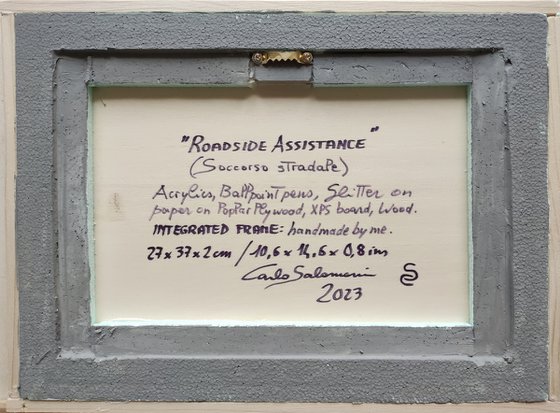 "ROADSIDE ASSISTANCE"
(Soccorso stradale)
Acrylics, Ballpoint pens, Glitter on
paper on Poplar Plywood, XPS board, Wood.
INTEGRATED FRAME: handmade by me.
27x37x2cm / 10,6x14,6x0,8 inn
Carlo Salomoni
2023